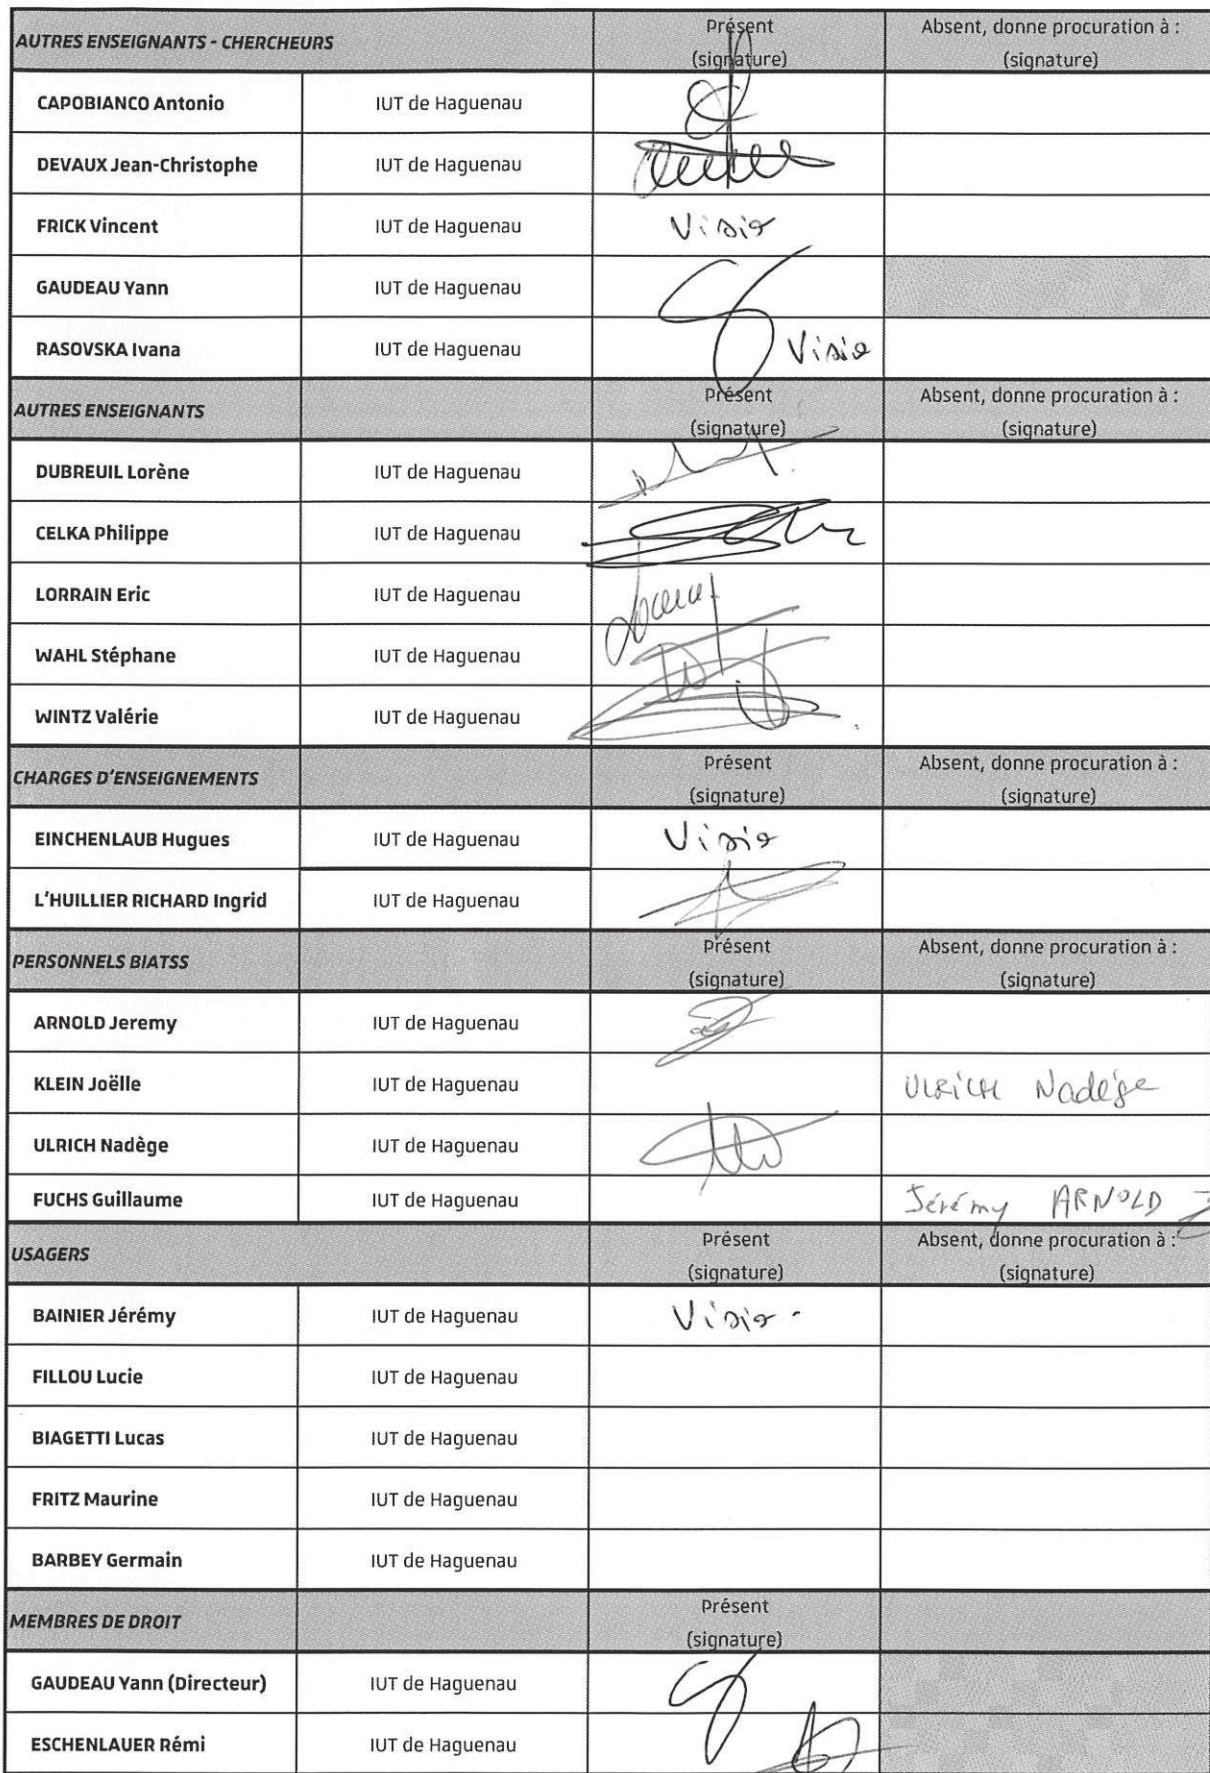 AUTRES ENSEIGNANTS - CHERCHEURS Présent Absent, donne procuration à :
(signature) (signature)
CAPOBIANCO Antonio IUT de Haguenau
DEVAUX Jean-Christophe IUT de Haguenau
FRICK Vincent IUT de Haguenau Visio
GAUDEAU Yann IUT de Haguenau
RASOVSKA Ivana IUT de Haguenau Visio
AUTRES ENSEIGNANTS Présent Absent, donne procuration à :
(signature) (signature)
DUBREUIL Lorène IUT de Haguenau
CELKA Philippe IUT de Haguenau
LORRAIN Eric IUT de Haguenau
WAHL Stéphane IUT de Haguenau
WINTZ Valérie IUT de Haguenau
CHARGES D'ENSEIGNEMENTS Présent Absent, donne procuration à :
(signature) (signature)
EINCHENLAUB Hugues IUT de Haguenau Visio
L'HUILLIER RICHARD Ingrid IUT de Haguenau
PERSONNELS BIATSS Présent Absent, donne procuration à :
(signature) (signature)
ARNOLD Jeremy IUT de Haguenau
KLEIN Joëlle IUT de Haguenau ULRICH Nadège
ULRICH Nadège IUT de Haguenau
FUCHS Guillaume IUT de Haguenau Jérémy ARNOLD
USAGERS Présent Absent, donne procuration à :
(signature) (signature)
BAINIER Jérémy IUT de Haguenau Visio -
FILLOU Lucie IUT de Haguenau
BIAGETTI Lucas IUT de Haguenau
FRITZ Maurine IUT de Haguenau
BARBEY Germain IUT de Haguenau
MEMBRES DE DROIT Présent
(signature)
GAUDEAU Yann (Directeur) IUT de Haguenau
ESCHENLAUER Rémi IUT de Haguenau